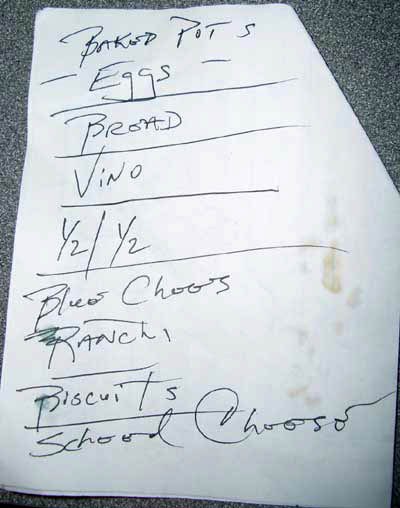 BAKED POT S
- Eggs -
BREAD
ViNO
1/2 / 1/2
Blue Chees
RANCH
BiscuiTs
Cheese